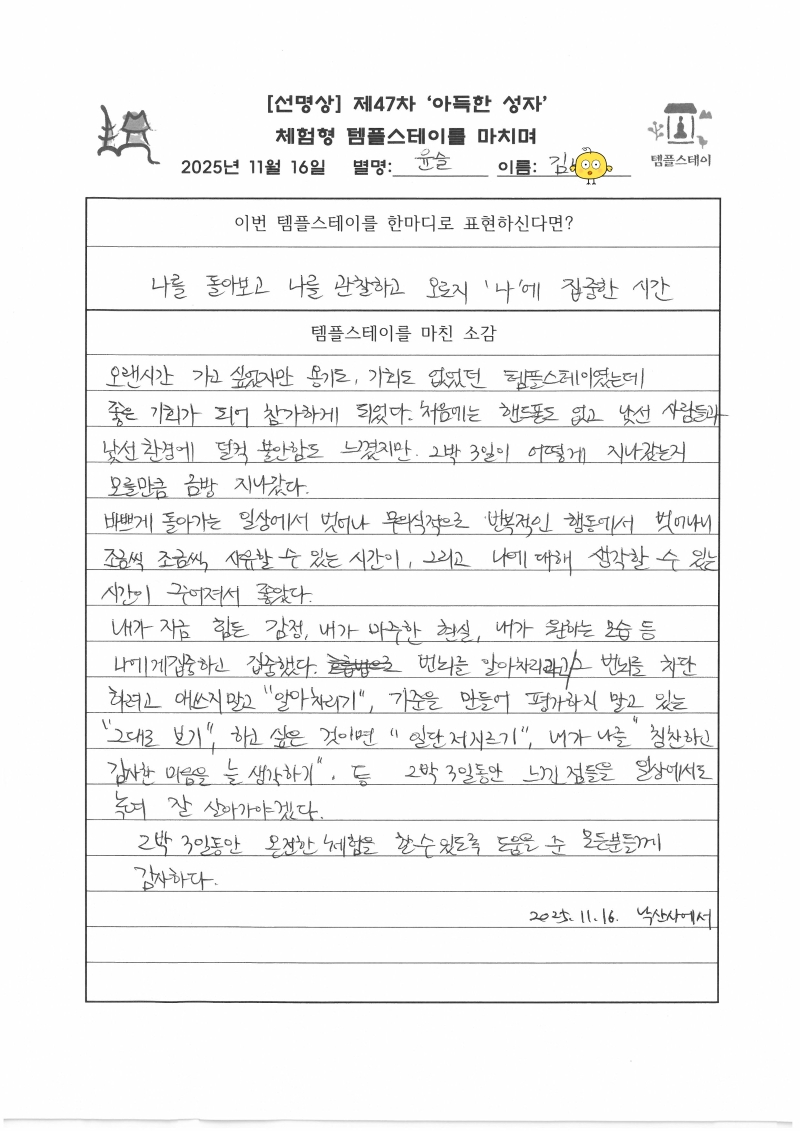 [선명상] 제47차 '아득한 성자'
체험형 템플스테이를 마치며
2025년 11월 16일 별명: 윤슬 이름: 김
템플스테이
이번 템플스테이를 한마디로 표현하신다면?
나를 돌아보고 나를 관찰하고 오로지 '나'에 집중한 시간
템플스테이를 마친 소감
오랜시간 가고 싶었지만 용기도, 기회도 없었던 템플스테이였는데
좋은 기회가 되어 참가하게 되었다. 처음에는 핸드폰도 없고 낯선 사람들과
낯선 환경에 덜컥 불안함도 느꼈지만. 2박 3일이 어떻게 지나갔는지
모를만큼 금방 지나갔다.
바쁘게 돌아가는 일상에서 벗어나 무의식적으로 반복적인 행동에서 벗어나니
조금씩 조금씩 사유할 수 있는 시간이, 그리고 나에 대해 생각할 수 있는
시간이 주어져서 좋았다.
내가 지금 힘든 감정, 내가 마주한 현실, 내가 원하는 모습 등
나에게 집중하고 집중했다. 번뇌를 알아차리고 번뇌를 차단
하려고 애쓰지 말고 "알아차리기", 기준을 만들어 평가하지 말고 있는
"그대로 보기", 하고 싶은 것이면 "일단 저지르기", 내가 나를 "칭찬하고
감사한 마음을 늘 생각하기". 등 2박 3일동안 느낀 점들을 일상에서도
녹여 잘 살아가야겠다.
2박 3일동안 온전한 체험을 할 수 있도록 도움을 준 모든분들께
감사하다.
2025. 11. 16. 낙산사에서